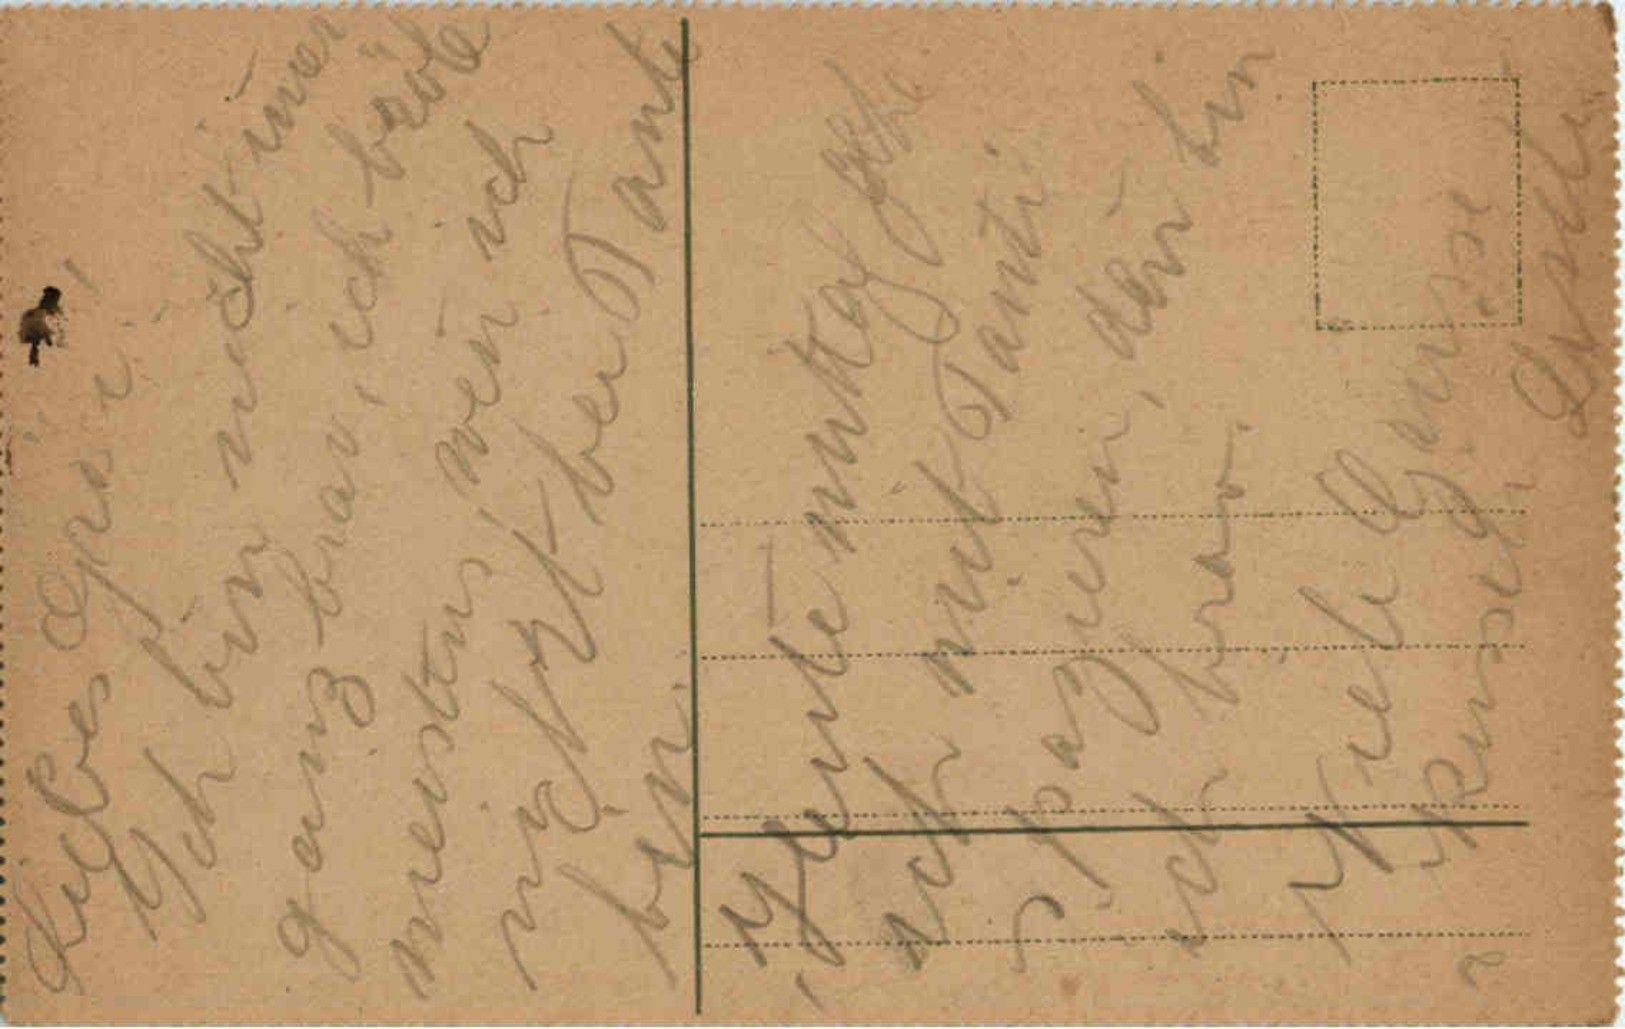 Liebes Opai!
Ich bin nicht imer
ganz brav, ich bröle
meistens wen ich
nicht bei Tante
bin.
Heute mittag gehe
ich mit Tanti
spaziren, den bin
ich brav.
Viele